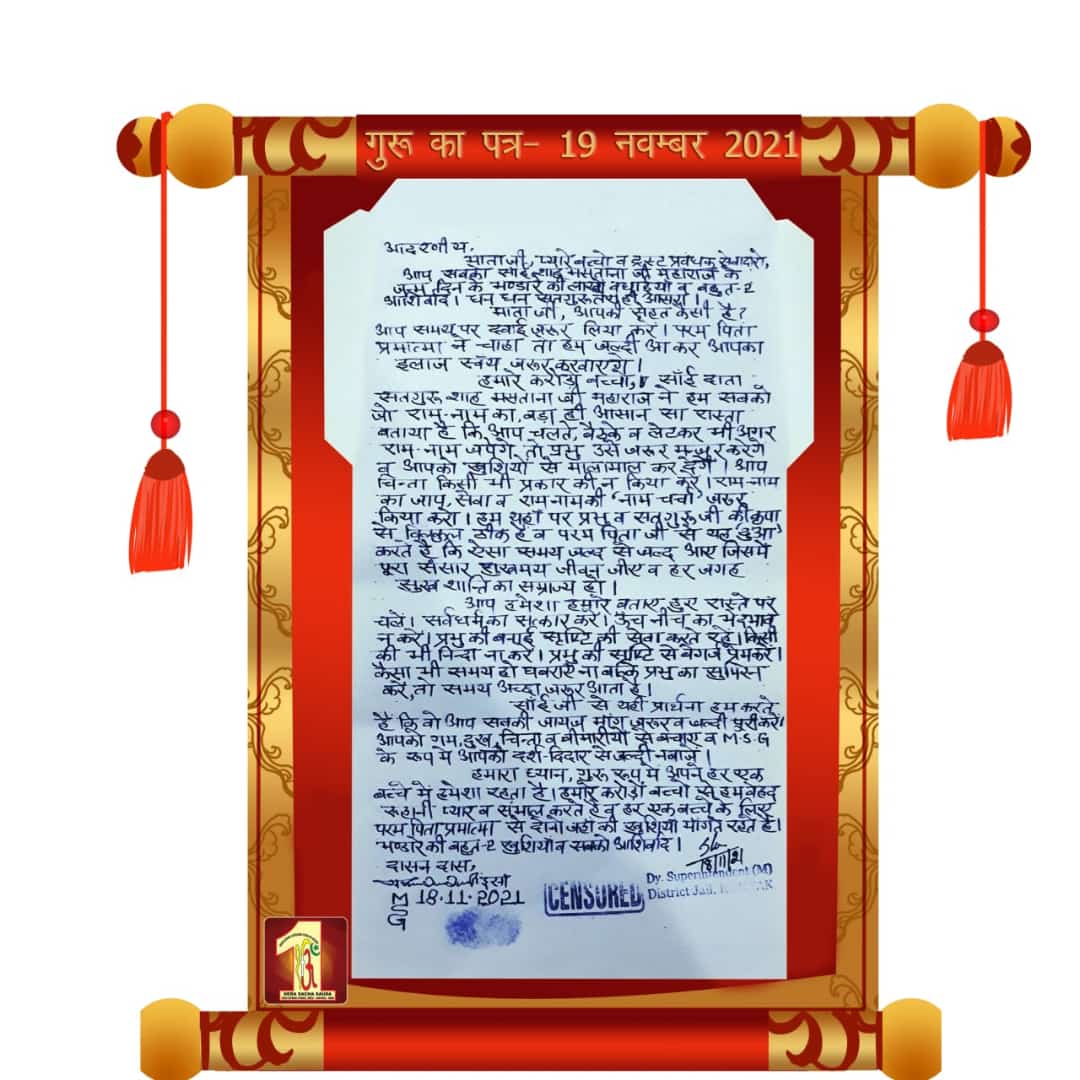 गुरू का पत्र- 19 नवम्बर 2021
आदरणीय,
माताजी, प्यारे बच्चो व ट्रस्ट प्रबंधक सेवादारो,
आप सबको साँई शाह मसताना जी महाराज के
जन्म दिन के भण्डारे की लाखों बधाईयां व बहुत-2
आशिर्वाद। धन धन सतगुरू तेरा ही आसरा।
माता जी, आपकी सेहत कैसी है?
आप समय पर दवाई ज़रूर लिया करें। परम पिता
प्रमात्मा ने चाहा तो हम जल्दी आ कर आपका
इलाज स्वयं जरूर करवाएंगे।
हमारे करोड़ों बच्चो, साँई दाता
सतगुरू शाह मसताना जी महाराज ने हम सबको
जो राम-नाम का, बड़ा ही आसान सा रास्ता
बताया है कि आप चलते, बैठके व लेटकर भी अगर
राम-नाम जपेंगे तो प्रभु उसे जरूर मन्जूर करेंगे
व आपको खुशियों से मालामाल कर देंगे। आप
चिन्ता किसी भी प्रकार की न किया करें। राम-नाम
का जाप, सेवा व रामनाम की 'नाम चर्चा' ज़रूर
किया करो। हम यहाँ पर प्रभु व सतगुरू जी की कृपा
से बिल्कुल ठीक हैं व परम पिता जी से यह 'दुआ'
करते हैं कि ऐसा समय जल्द से जल्द आए जिसमें
पूरा संसार सुखमय जीवन जीए व हर जगह
सुख शान्ति का सम्राज्य हो।
आप हमेशा हमारे बताए हुए रास्ते पर
चलें। सर्वधर्म का सत्कार करें। ऊंच नीच का भेदभाव
न करें। प्रभु की बनाई सृष्टि की सेवा करते रहें। किसी
की भी निन्दा ना करें। प्रभु की सृष्टि से बेगर्ज प्रेम करें।
कैसा भी समय हो घबराएं ना बल्कि प्रभु का सुमिरन
करें, तो समय अच्छा जरूर आता है।
साँई जी से यही प्रार्थना हम करते
हैं कि वो आप सबकी जायज मांग ज़रूर व जल्दी पुरी करें।
आपको गम, दुख, चिन्ता व बीमारीयों से बचाए व M.S.G
के रूप में आपको दर्श-दिदार से जल्दी नवाजें।
हमारा ध्यान, गुरू रूप में अपने हर एक
बच्चे में हमेशा रहता है। हमारे करोड़ों बच्चों से हम बेहद
रूहानी प्यार व संभाल करते हैं व हर एक बच्चे के लिए
परम पिता प्रमात्मा से दोनों जहाँ की खुशियां मांगते रहते हैं।
भण्डारे की बहुत-2 खुशियां व सबको आशिर्वाद।
दासन दास,
इंसां
18/11/21
18.11.2021
MSG
CENSURED
Dy. Superintendent (M)
District Jail,
1
DERA SACHA SAUDA